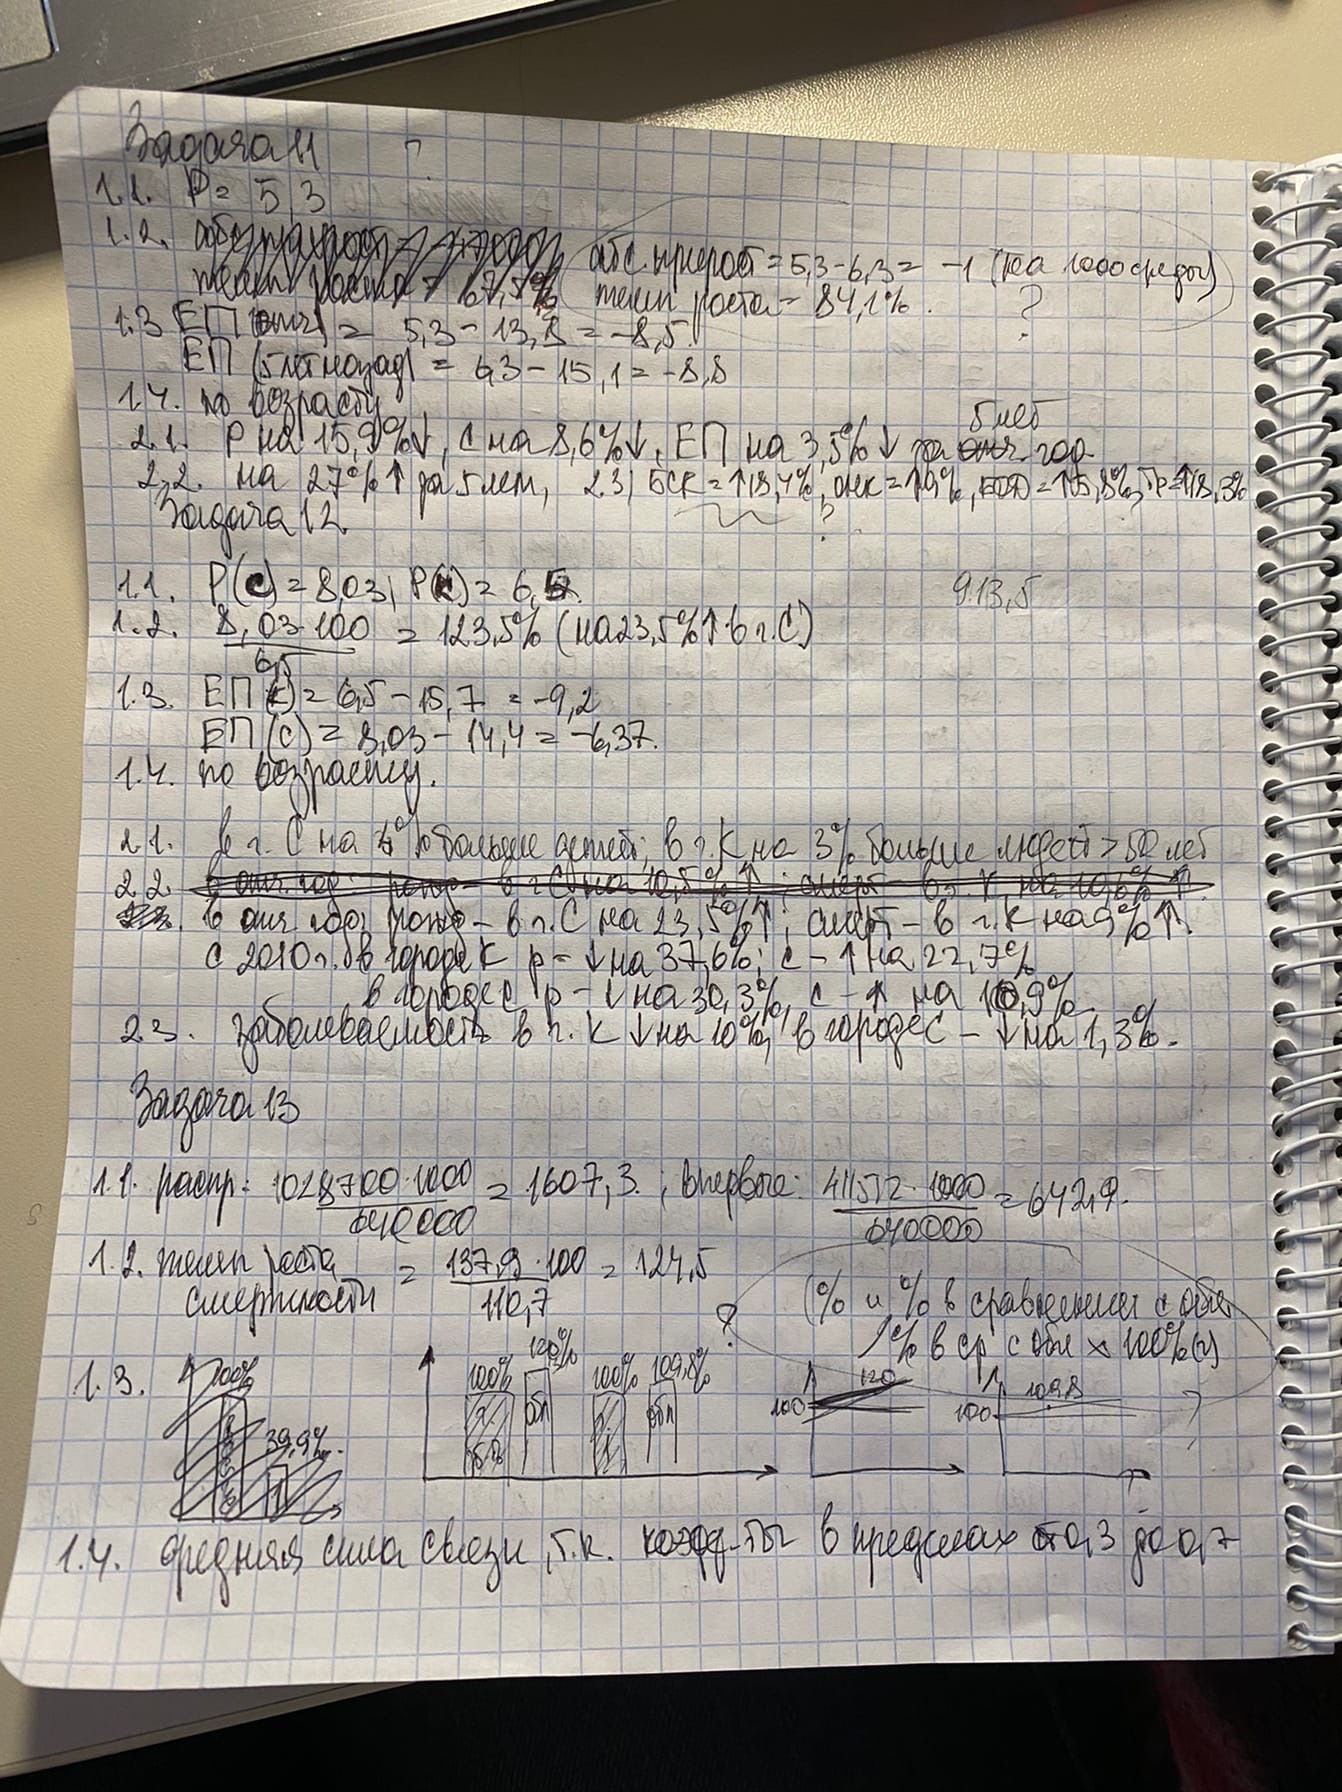 Задача 11 ?
1.1. Р = 5,3
1.2. абс. прирост = 5,3 - 6,3 = -1 (на 1000 среды)
темп роста = 67,5% темп роста = 84,1%. ?
1.3 ЕП (отч) = 5,3 - 13,8 = -8,5.
ЕП (5 лет назад) = 6,3 - 15,1 = -8,8
1.4. по возрасту
5 лет
2.1. Р на 15,9%↓, С на 8,6%↓, ЕП на 3,5%↓ за отч. год
2.2. на 27%↑ за 5 лет, 2.3) БСК = ↑18,4%, онк = ↑9%, = ↑5,8%, Тр = ↑18,3%
Задача 12. ?
1.1. Р(С) = 8,03, Р(К) = 6,5. 9.13,5
1.2. 8,03·100 / 6,5 = 123,5% (на 23,5%↑ в г. С)
1.3. ЕП(К) = 6,5 - 15,7 = -9,2
ЕП(С) = 8,03 - 14,4 = -6,37.
1.4. по возрасту.
2.1. в г. С на 4% больше детей; в г. К на 3% больше людей > 50 лет
2.2. в отч. год: рожд - в г. С на 10,5%↑; смерт - в г. К на 10,6%↑
в отч. год: рожд - в г. С на 23,5%↑; смерт - в г. К на 9%↑.
с 2010 г. в городе К р - ↓ на 37,6%; с - ↑ на 22,7%
в городе С р - ↓ на 30,3%, с - ↑ на 10,9%
2.3. заболеваемость в г. К ↓ на 10%, в городе С - ↓ на 1,3%.
Задача 13
1.1. распр: 1028700·1000 / 640000 = 1607,3.; впервые: 411512·1000 / 640000 = 642,9.
1.2. темп роста смертности = 137,9·100 / 110,7 = 124,5
(% и % в сравнении с обл.
? 1% в ср с обл × 100%(и)
1.3. 100% 39,9% 100% 120% обл 100% 109,8% обл 100 120 100 109,8 ?
1.4. средняя сила связи, т.к. коэфф-ты в пределах от 0,3 до 0,7